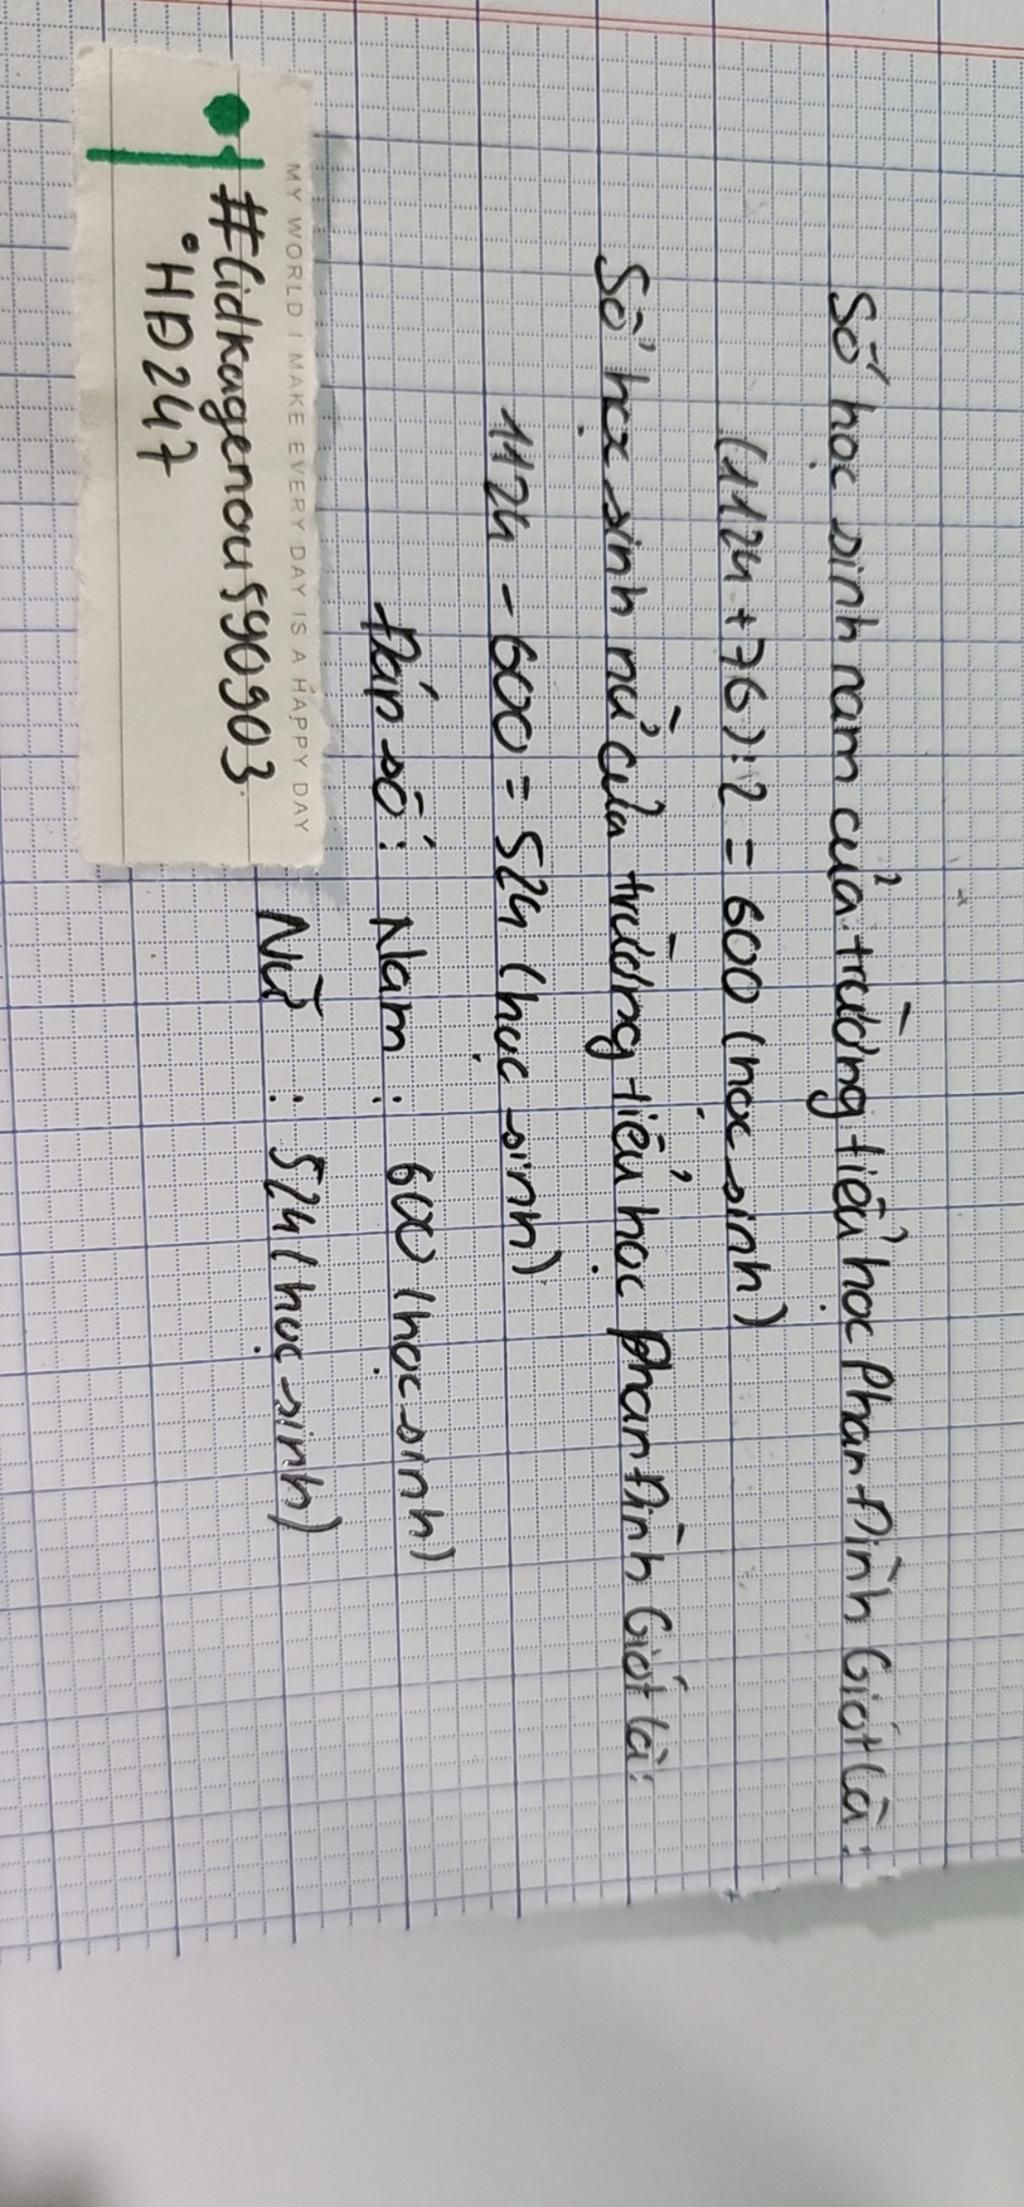 Số học sinh nam của trường tiểu học Phan Đình Giót là:
(1124 + 76) : 2 = 600 (học sinh)
Số học sinh nữ của trường tiểu học Phan Đình Giót là:
1124 - 600 = 524 (học sinh)
Đáp số: Nam: 600 (học sinh)
Nữ : 524 (học sinh)
MY WORLD I MAKE EVERY DAY IS A HAPPY DAY
#Cidkagenou590903
HĐ247